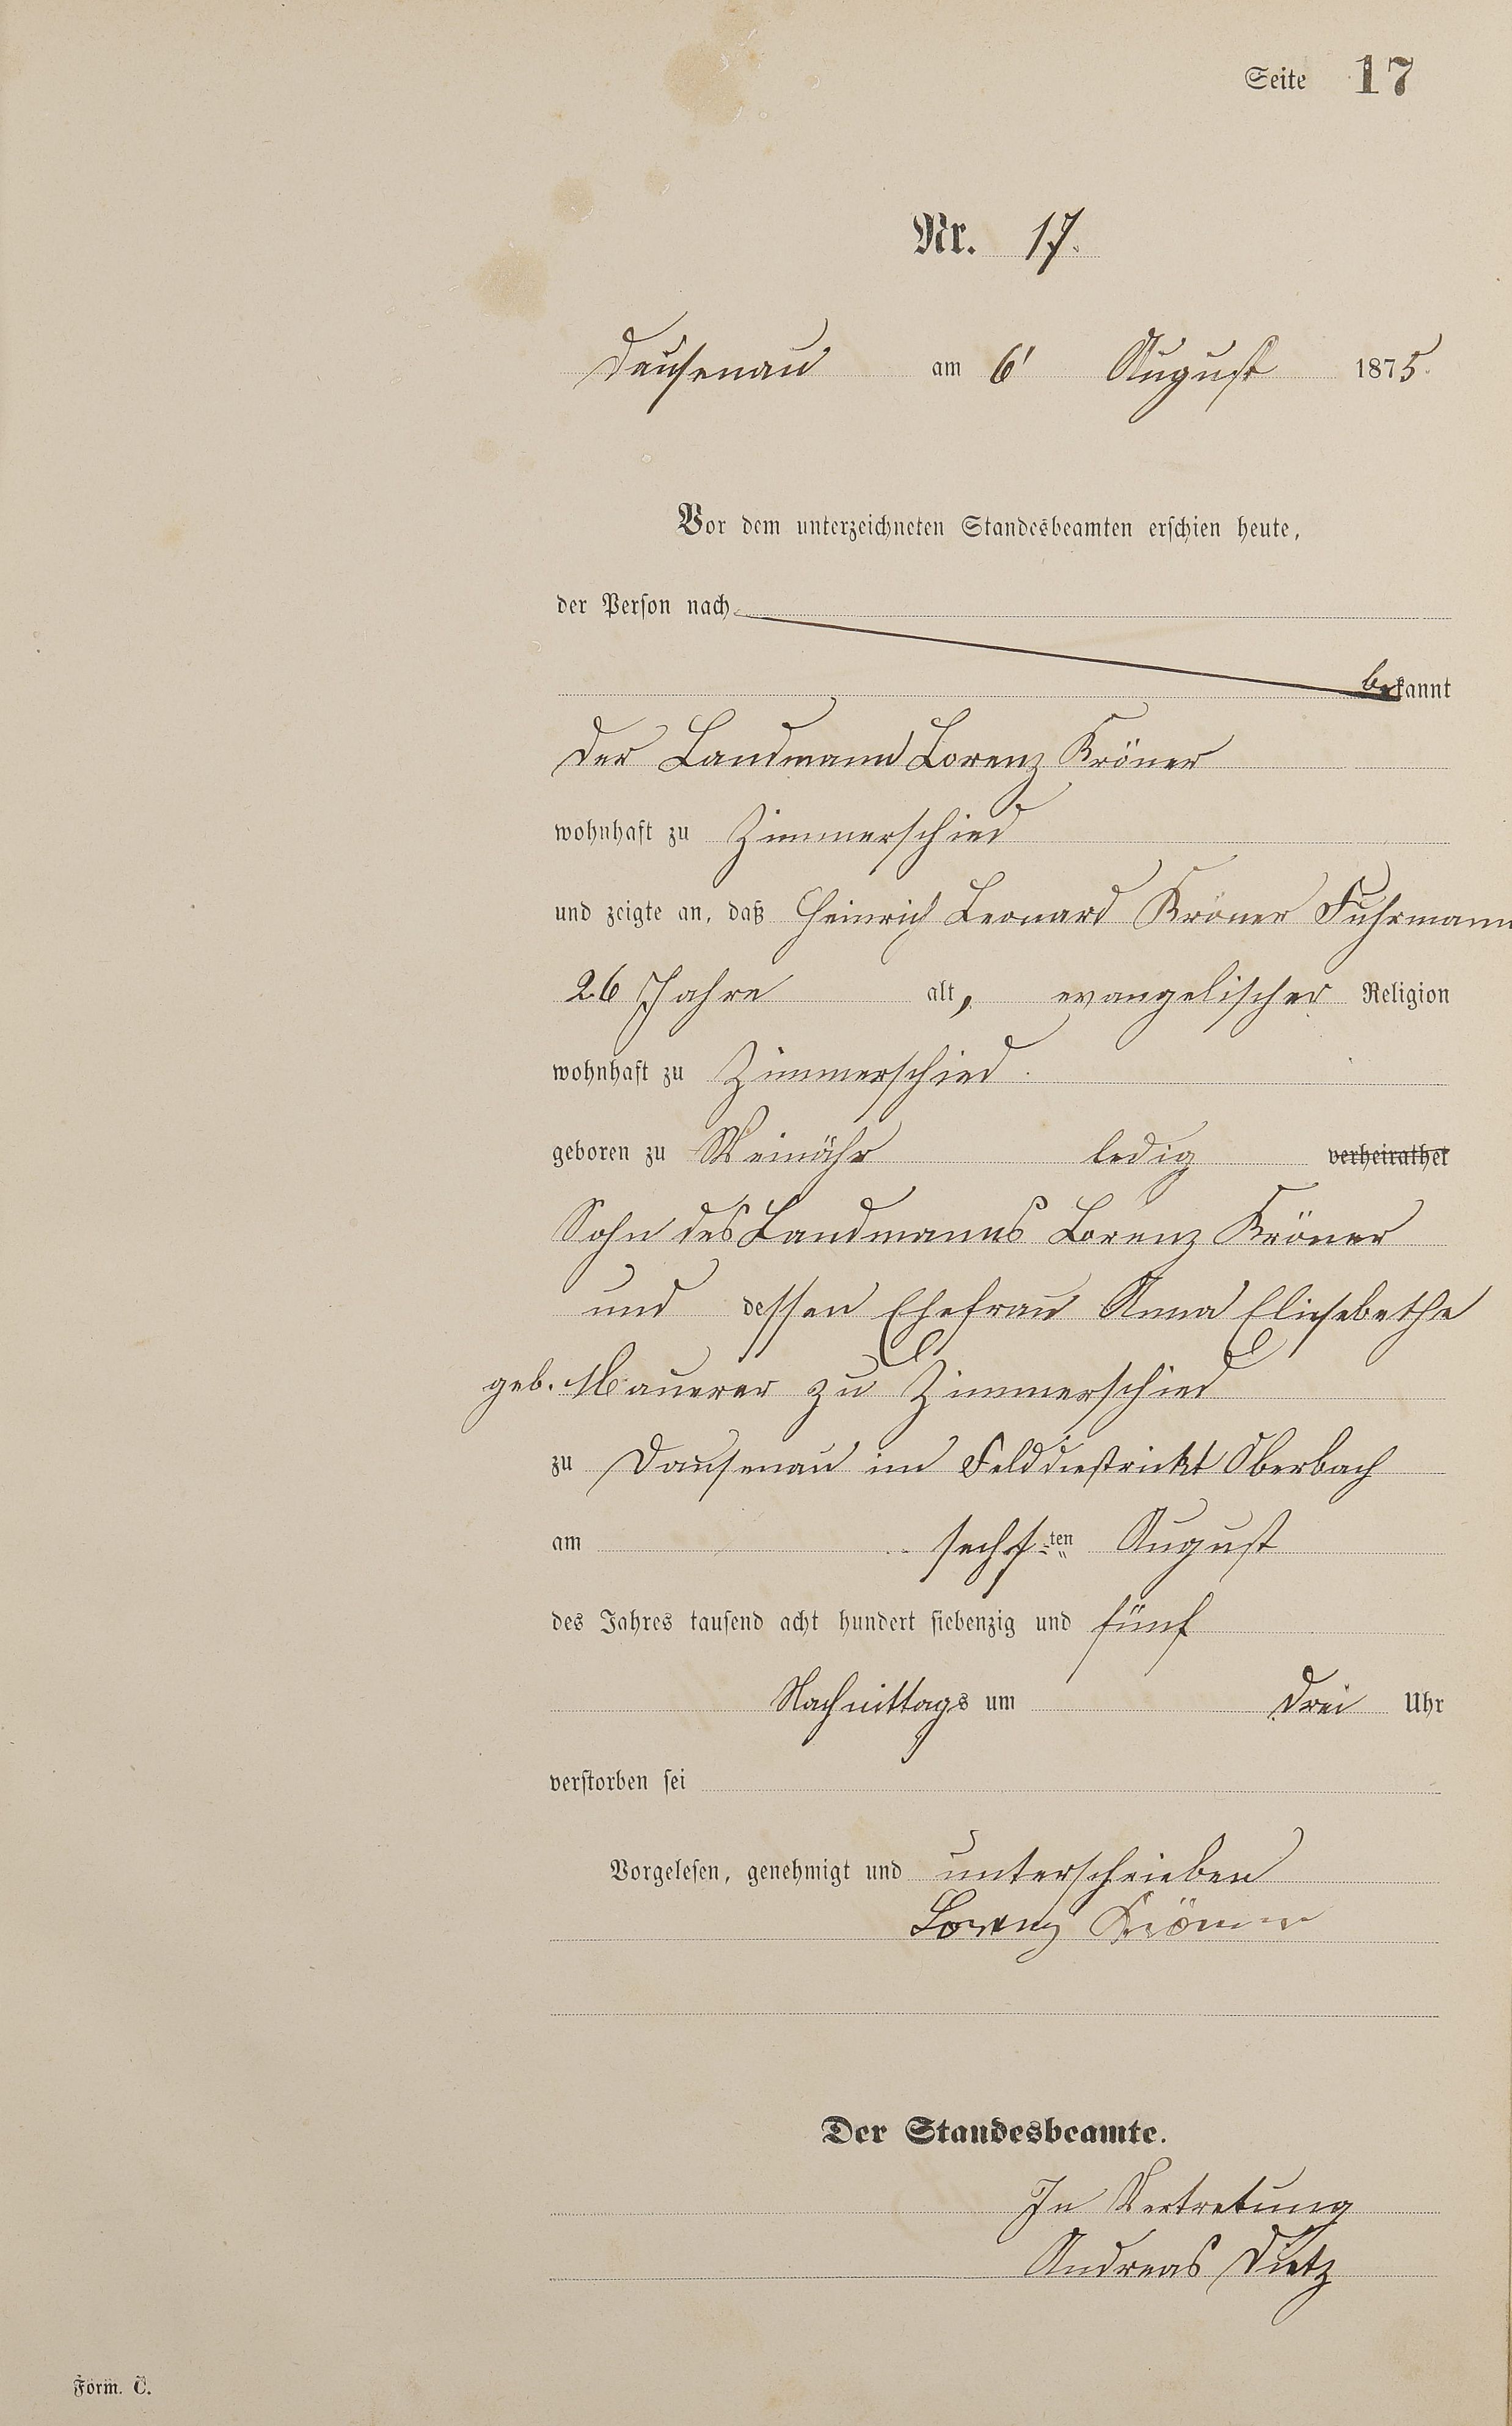 Seite 17
Nr. 17.
Dausenau am 6' August 1875.
Vor dem unterzeichneten Standesbeamten erschien heute,
der Person nach
bekannt
der Landmann Lorenz Kröner
wohnhaft zu Zimmerschied
und zeigte an, daß Heinrich Leonard Kröner Fuhrmann
26 Jahre alt, evangelischer Religion
wohnhaft zu Zimmerschied.
geboren zu Weinähr ledig verheirathet
Sohn des Landmanns Lorenz Kröner
und dessen Ehefrau Anna Eliesebethe
geb. Mauerer zu Zimmerschied
zu Dausenau im Felddiestrickt Oberbach
am sechsten August
des Jahres tausend acht hundert siebenzig und fünf
Nachmittags um drei Uhr
verstorben sei
Vorgelesen, genehmigt und unterschrieben
Lorenz Kröner
Der Standesbeamte.
In Vertretung
Andreas Dietz
Form. C.